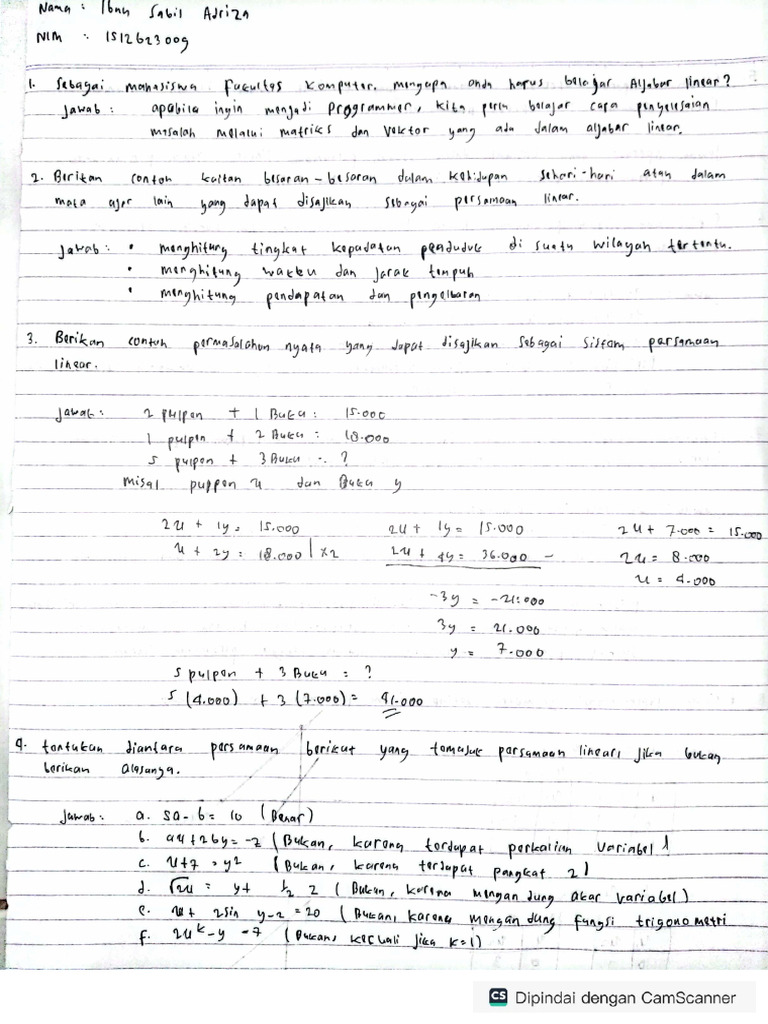 Nama : Ibnu Sabil Adriza
NIM : 1512623009
1. Sebagai mahasiswa Fakultas Komputer. mengapa anda harus belajar Aljabar linear?
Jawab : apabila ingin menjadi programmer, kita perlu belajar cara penyelesaian
masalah melalui matriks dan vektor yang ada dalam aljabar linear.
2. Berikan contoh kaitan besaran-besaran dalam kehidupan sehari-hari atau dalam
mata ajar lain yang dapat disajikan sebagai persamaan linear.
Jawab : • menghitung tingkat kepadatan penduduk di suatu wilayah tertentu.
• menghitung waktu dan jarak tempuh
• menghitung pendapatan dan pengeluaran
3. Berikan contoh permasalahan nyata yang dapat disajikan sebagai sistem persamaan
linear.
Jawab : 2 pulpen + 1 Buku : 15.000
1 pulpen + 2 Buku : 18.000
5 pulpen + 3 Buku : ?
misal pulpen x dan Buku y
2x + 1y = 15.000 2x + 1y = 15.000 2x + 7.000 = 15.000
x + 2y = 18.000 | x2 2x + 4y = 36.000 - 2x = 8.000
x = 4.000
-3y = -21.000
3y = 21.000
y = 7.000
5 pulpen + 3 Buku = ?
5 (4.000) + 3 (7.000) = 41.000
4. tentukan diantara persamaan berikut yang termasuk persamaan linear, jika bukan
berikan alasanya.
Jawab : a. 5a - b = 10 (Benar)
b. ax + 2by = -z (Bukan, karena terdapat perkalian variabel)
c. x + 7 = y² (Bukan, karena terdapat pangkat 2)
d. √2x = y + 1/2 z (Bukan, karena mengandung akar variabel)
e. x + 2sin y - z = 20 (Bukan, karena mengandung fungsi trigonometri
f. 2xᵏ - y = 7 (Bukan, kecuali jika k = 1)
CS Dipindai dengan CamScanner